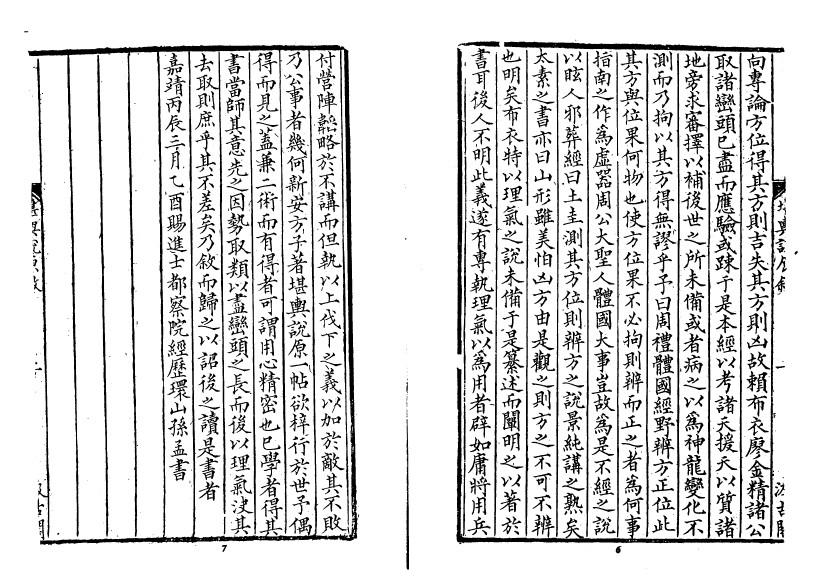 向專論方位得其方則吉失其方則凶故賴布衣廖金精諸公
取諸巒頭已盡而應驗或疎于是本經以考諸天援天以質諸
地旁求審擇以補後世之所未備或者病之以爲神龍變化不
測而乃拘以其方得無謬乎予曰周禮體國經野辨方正位此
其方與位果何物也使方位果不必拘則辨而正之者爲何事
指南之作爲虛器周公大聖人體國大事豈故爲是不經之說
以眩人邪葬經曰土圭測其方位則辨方之說景純講之熟矣
太素之書亦曰山形雖美怕凶方由是觀之則方之不可不辨
也明矣布衣特以理氣之說未備于是纂述而闡明之以著於
書耳後人不明此義遂有專執理氣以爲用者辟如庸將用兵
付營陣韜略於不講而但執以上伐下之義以加於敵其不敗
乃公事者幾何新安方子著堪輿說原一帖欲梓行於世予偶
得而見之蓋兼二術而有得者可謂用心精密也已學者得其
書當師其意先之因勢取類以盡巒頭之長而後以理氣決其
去取則庶乎其不差矣乃敘而歸之以詔後之讀是書者
嘉靖丙辰三月乙酉賜進士都察院經歷環山孫孟書
6
7